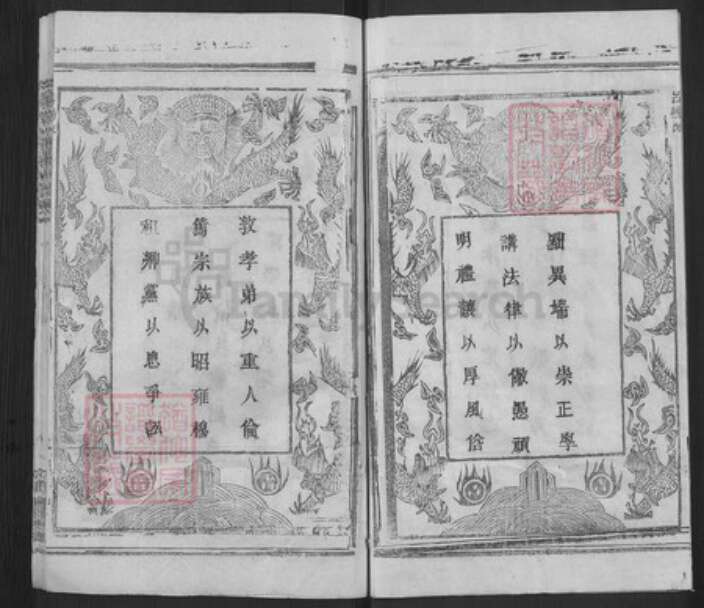 黜異端以崇正學
講法律以儆愚頑
明禮讓以厚風俗
敦孝弟以重人倫
篤宗族以昭雍穆
和鄉黨以息爭訟
FamilySearch